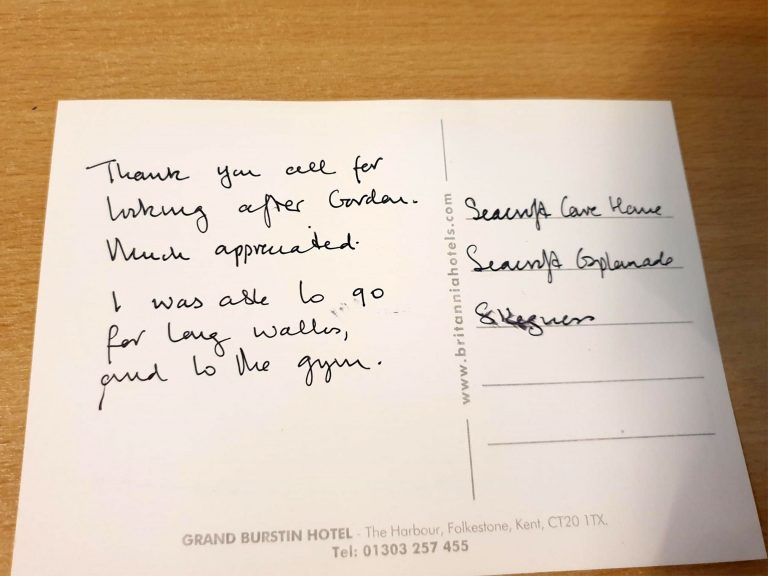 Thank you all for
looking after Gordon.
Much appreciated.
I was able to go
for long walks,
and to the gym.
www.britanniahotels.com
Seacroft Care Home
Seacroft Esplanade
Skegness
GRAND BURSTIN HOTEL - The Harbour, Folkestone, Kent, CT20 1TX.
Tel: 01303 257 455